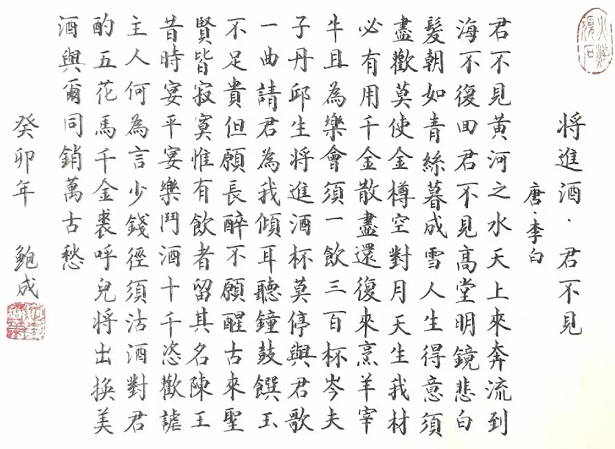 将進酒·君不見
唐·李白
君不見黃河之水天上來奔流到
海不復回君不見高堂明鏡悲白
髮朝如青絲暮成雪人生得意須
盡歡莫使金樽空對月天生我材
必有用千金散盡還復來烹羊宰
牛且為樂會須一飲三百杯岑夫
子丹邱生将進酒杯莫停與君歌
一曲請君為我傾耳聽鐘鼓饌玉
不足貴但願長醉不願醒古來聖
賢皆寂寞惟有飲者留其名陳王
昔時宴平宴樂鬥酒十千恣歡謔
主人何為言少錢徑須沽酒對君
酌五花馬千金裘呼兒将出換美
酒與爾同銷萬古愁
癸卯年 鮑成